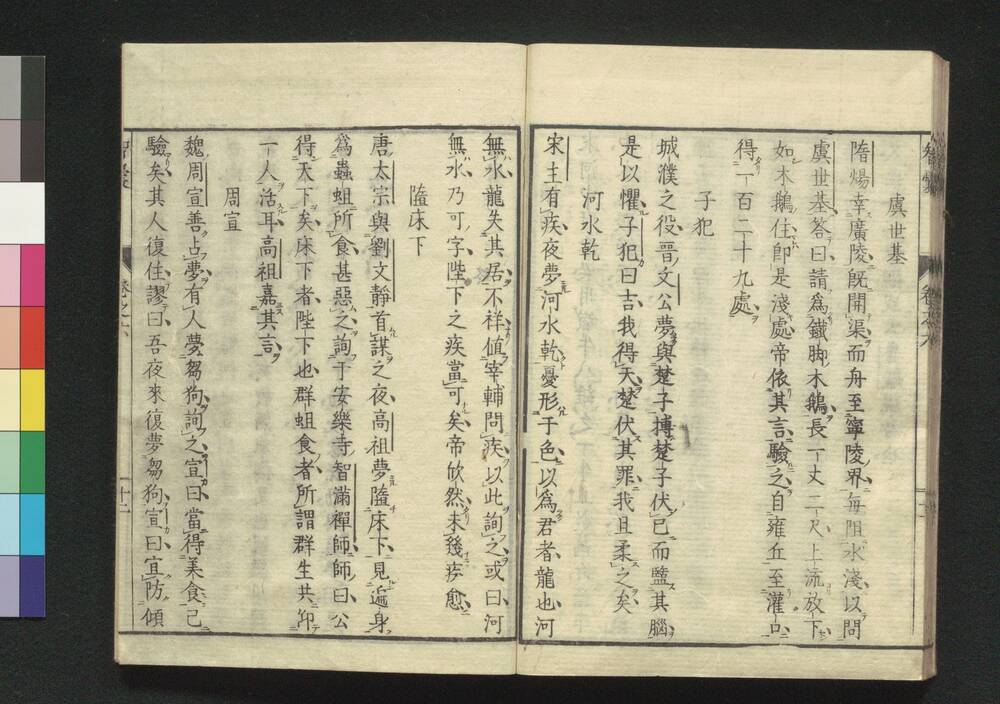 虞世基
隋煬幸廣陵既開渠而舟至寧陵界毎阻水淺以問
虞世基答曰請為鐵脚木鵝長一丈二尺上流放下
如木鵝住即是淺處帝依其言驗之自雍丘至灌口
得一百二十九處
子犯
城濮之役晉文公夢與楚子搏楚子伏已而盬其腦
是以懼子犯曰吉我得天楚伏其罪我且柔之矣
河水乾
宋主有疾夜夢河水乾憂形于色以為君者龍也河
無水龍失其居不祥値宰輔問疾以此詢之或曰河
無水乃可字陛下之疾當可矣帝欣然未幾疾愈
隘床下
唐太宗與劉文靜首謀之夜高祖夢隘床下見遍身
為蟲蛆所食甚惡之詢于安樂寺智滿禪師師曰公
得天下矣床下者陛下也群蛆食者所謂群生共仰
一人活耳高祖嘉其言
周宣
魏周宣善占夢有人夢芻狗詢之宣曰當得美食已
驗矣其人復住謬曰吾夜來復夢芻狗宣曰宜防傾
十二